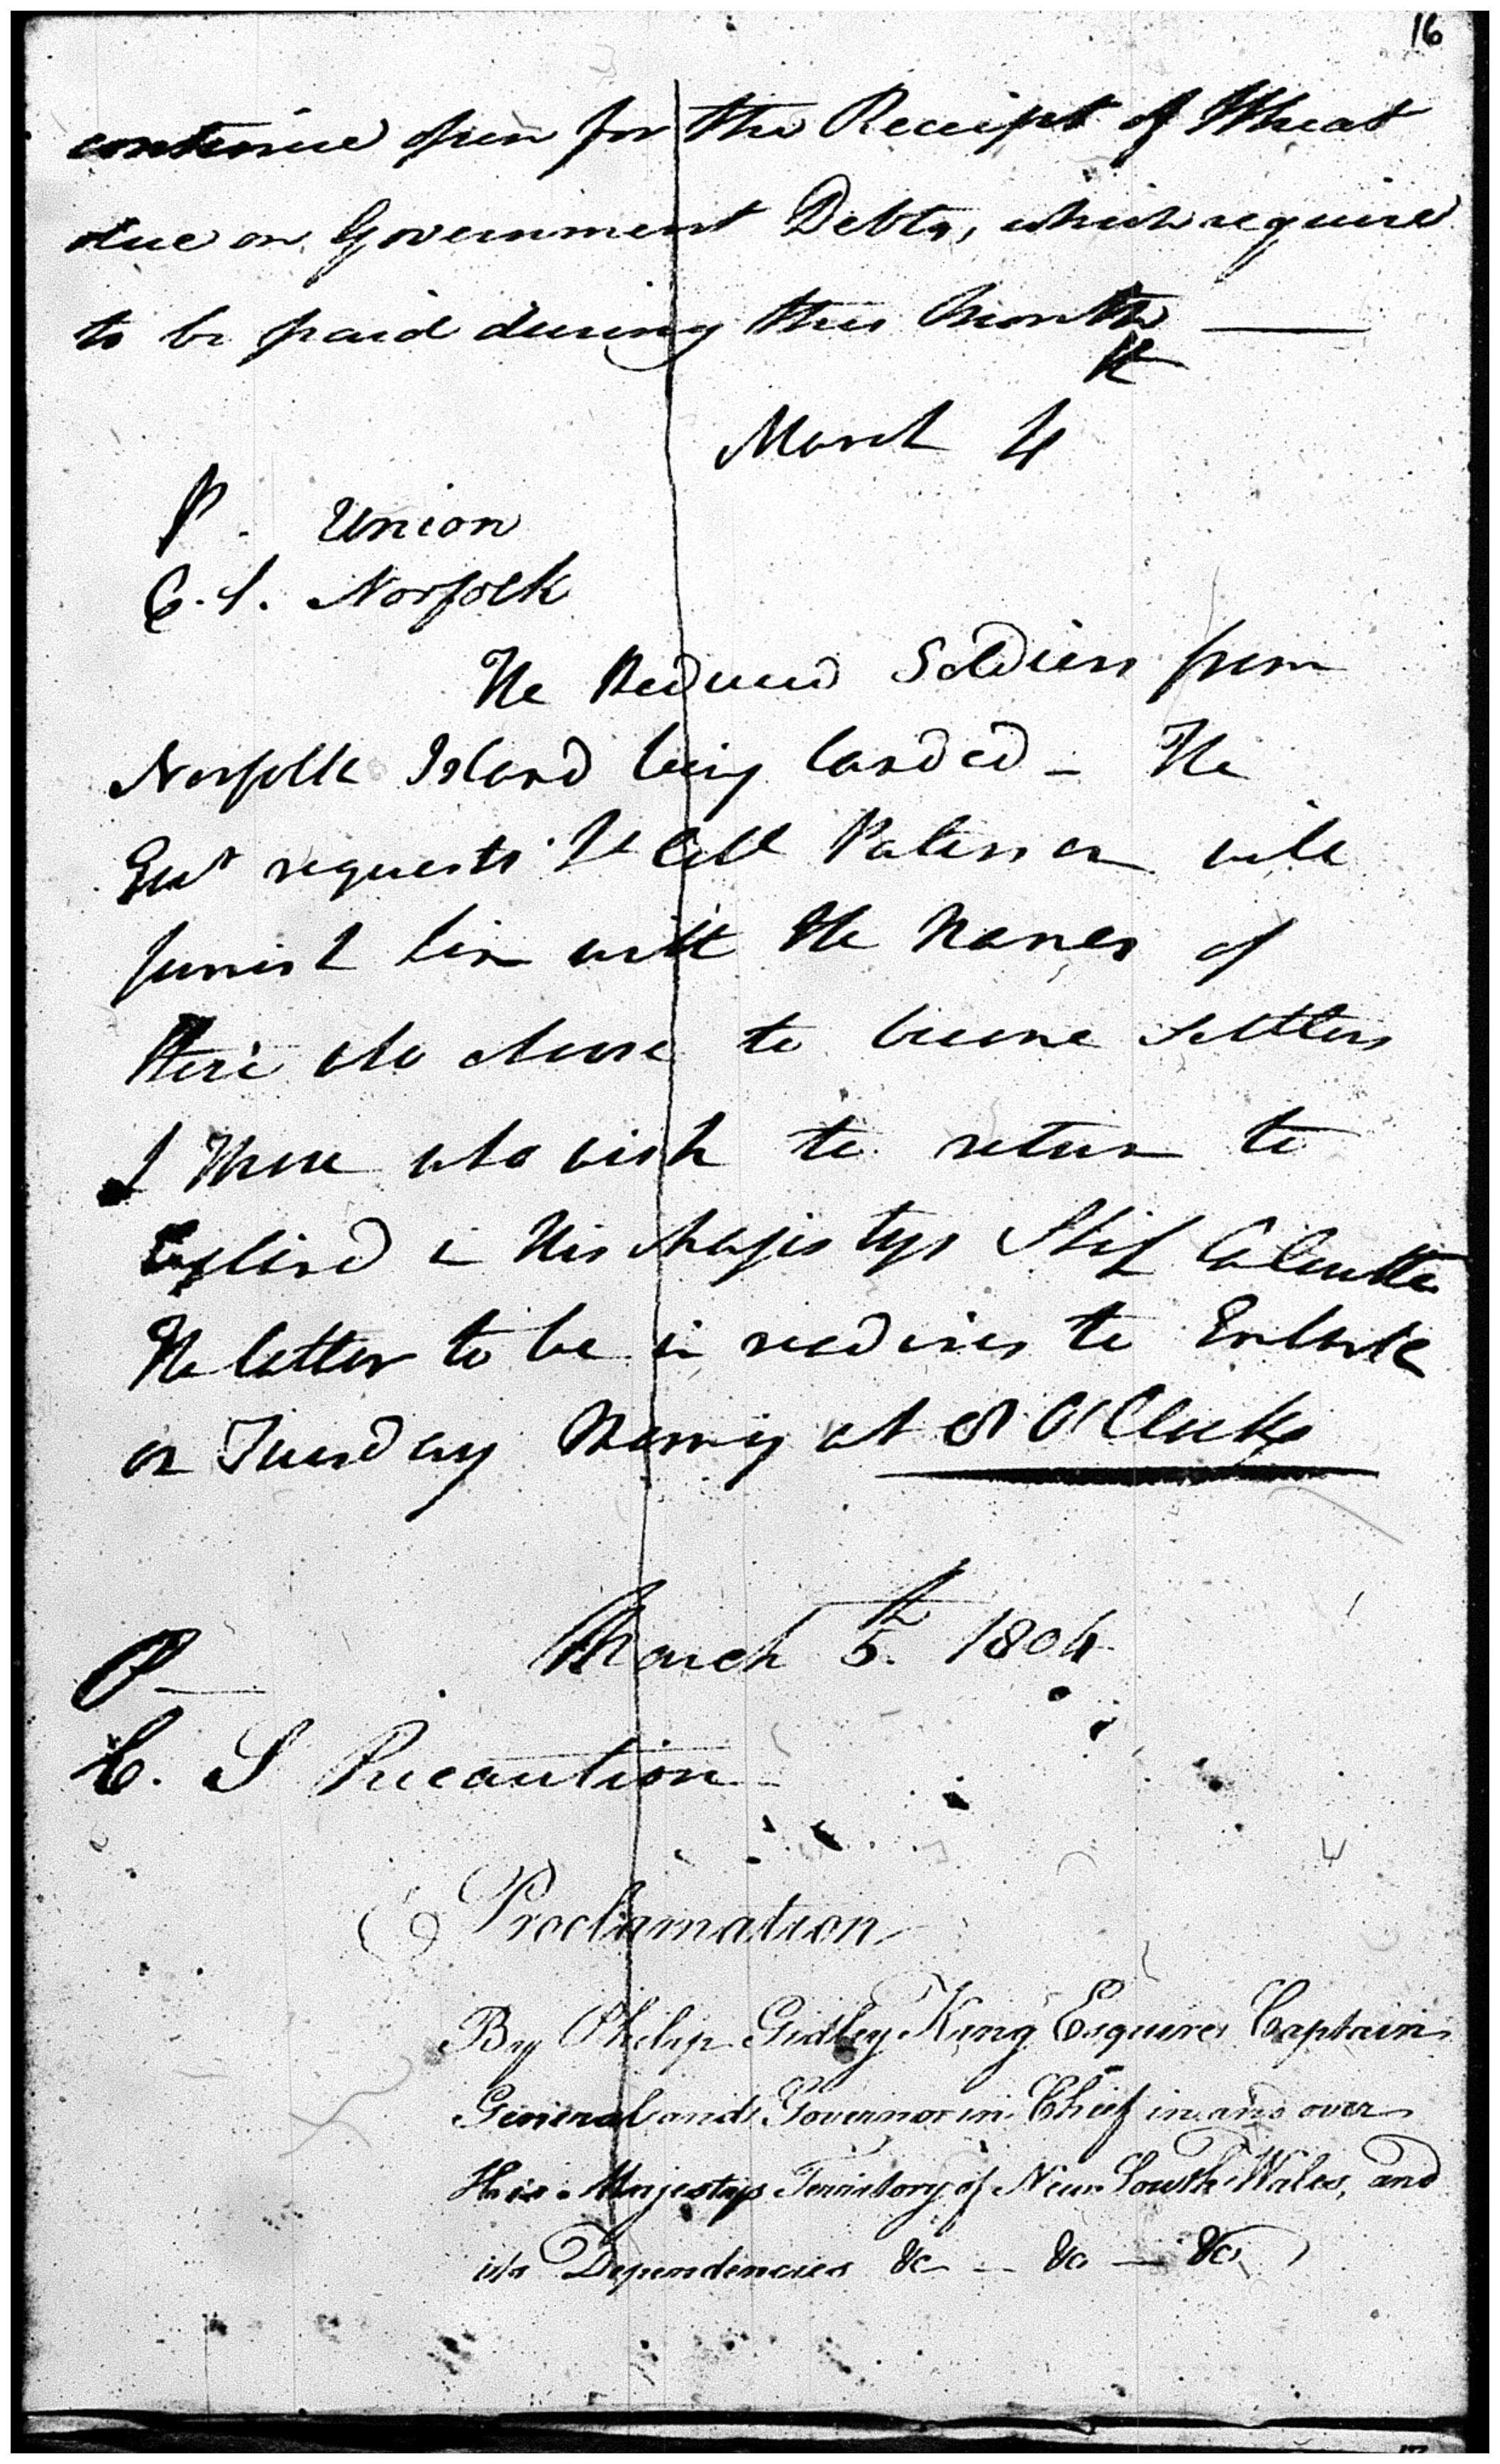 16
continue open for the Receipt of Wheat
due on Government Debts, which require
to be paid during this Month
March 4th
P. Union
C. S. Norfolk
The Reduced Soldiers from
Norfolk Island being landed - The
Govr requests Lt Coll Paterson will
furnish him with the Names of
those who chuse to become Settlers
& those who wish to return to
England in His Majestys Ship Calcutta
The latter to be in readiness to Embark
on Tuesday Morning at 8 O'Clock
March 5th 1804
P
C. S Precaution
Proclamation
By Philip Gidley King Esquire Captain
General and Governor in Chief in and over
His Majestys Territory of New South Wales, and
its Dependencies &c - &c - &c